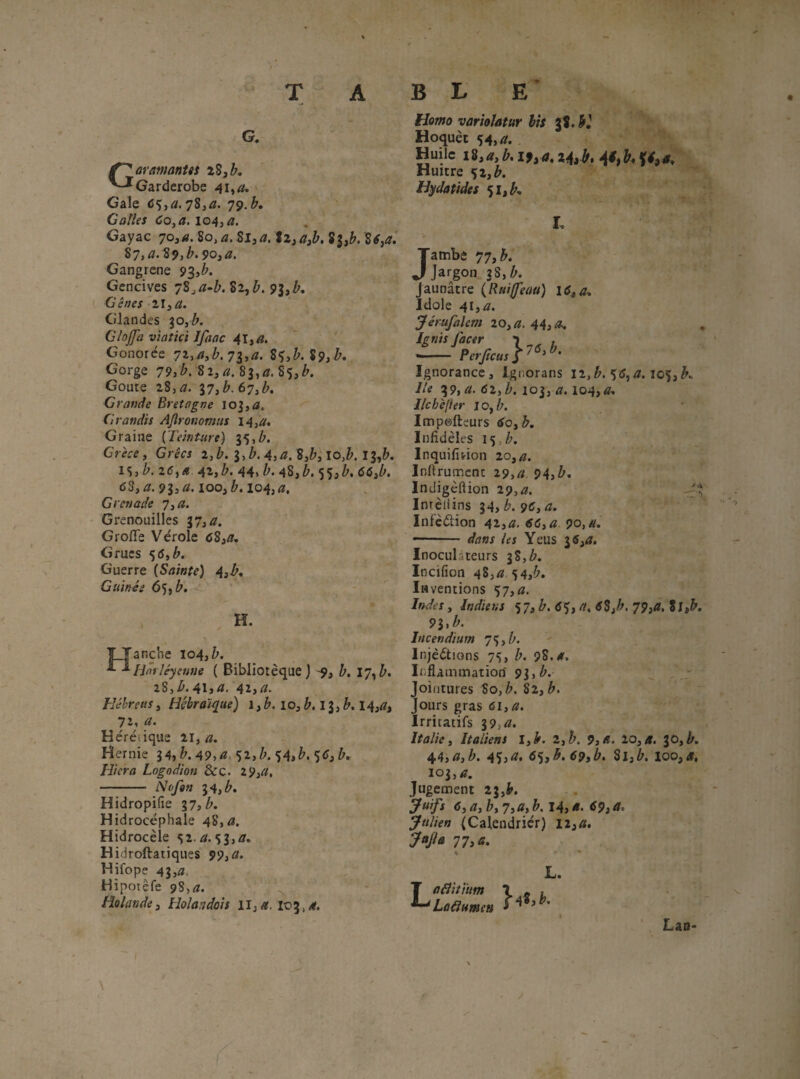 T A B L E
G.
Garamantes 28,b.
Garderobe 41,a.
Gale 65,a.78,a. 79.b.
Galles 60,a. 104,a.
Gayac 70,a. 80,a. 81,a. 82,a,b. 83,b. 86,a.
87,a.89,b.90,a.
Gangrene 93,b.
Gencives 78,a-b. 82,b. 93,b.
Génes 21,a.
Glandes 30,b.
Glossa viatici Isaac 41,a.
Gonorée 72,a,b.73,a. 85,b. 89,b.
Gorge 79,b. 82,a. 83,a. 85,b.
Goute 28,a. 37,b.67,b.
Grande Bretagne 103,a.
Grandis Astronomus 14,a.
Graine (Teinture) 35,b.
Grèce, Grècs 2,b. 3,b.4,a. 8,b,10,b. 13,b.
15,b. 26,a 42,b. 44,b. 48,b. 55,b. 66,b.
68,a. 93,a. 100,b.104,a.
Grenade 7,a.
Grenouilles 37,a.
Grosse Vérole 68,a.
Grues 56,b.
Guerre (Sainte) 4,b.
Guinée 65,b.
H.
Hanche 104,b.
Harléyenne ( Bibliotèque ) 9, b. 17,b.
28,b.41,a. 42,a.
Hébreus, Hébraïque) 1,b. 10,b.13,b.14,a,
72, a.
Hérétique 21, a.
Hernie 34,b.49,a. 52,b. 54,b. 56,b.
Hiera Logodion &c. 29,a.
—— Noson 34,b.
Hidropisie 37,b.
Hidrocéphale 48,a.
Hidrocèle 52.a.53,a.
Hidrostatiques 99,a.
Hisope 43,a.
Hipotèse 98,a.
Holande, Holandois 11,a. 103,a.
Homo variolatur bis 38.b.
Hoquèt 54,a.
Huile 18,a,b. 19,a. 24,b. 46,b. 56,a.
Huitre 52,b.
Hydatides 51,b.
I.
Jambe 77,b.
Jargon 38,b.
Jaunâtre (Ruisseau) 16,a.
Idole 41,a.
Jérusalem 20,a. 44,a.
Ignis sacer } 76,b.
—— Persicus
Ignorance, Ignorans 12,b. 56,a. 105,b.
Ile 39,a. 62,b. 103, a. 104,a.
Ilchèster 10,b.
Imposteurs 60,b.
Infidèles 15,b.
Inquisition 20,a.
Instrument 29,a 94,b.
Indigèstion 29,a.
Intèstins 34,b. 96,a.
Infèction 42,a. 66,a 90,a.
—— dans les Yeus 36,a.
Inoculateurs 38,b.
Incision 48,a 54,b.
Inventions 57,a.
Indes, Indiens 57,b. 65,a. 68,b. 79,a. 81,b.
93,b.
Incendium 75,b.
Injèctions 75, b. 98.a.
Inflammation 93,b.
Jointures 80,b. 82,b.
Jours gras 61,a.
Irritatifs 39,a.
Italie, Italiens 1,b. 2,b. 9,a. 20,a. 30,b.
44,a,b. 45,a. 65,b. 69,b. 81,b. 100,a.
103,a.
Jugement 23,b.
Juifs 6,a,b,7,a,b. 14,a. 69,a.
Julien (Calendriér) 12,a.
Justa 77,a.
L.
Lactitium } 48,b.
Lactumen
Lan-